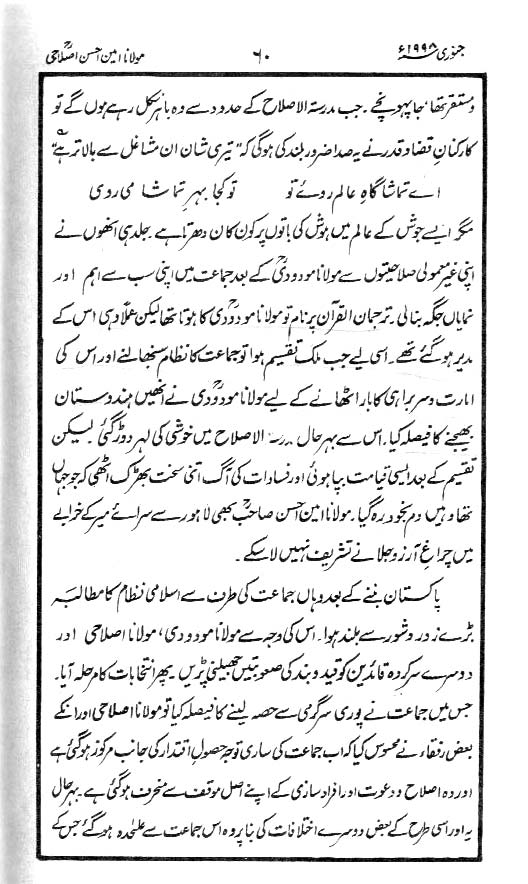 جنوری ۱۹۹۸ء ۶۰ مولانا امین احسن اصلاحیؒ
و مستقر تھا، جا پہونچے۔ جب مدرستہ الاصلاح کے حدود سے وہ باہر نکل رہے ہوں گے تو
کارکنانِ قضا و قدر نے یہ صدا ضرور بلند کی ہوگی کہ "تیری شان ان مشاغل سے بالاتر ہے"
اے تماشا گاہِ عالم روئے تو تو کجا بہرِ تماشا می روی
مگر ایسے جوش کے عالم میں ہوش کی باتوں پر کون کان دھرتا ہے۔ جلد ہی انھوں نے
اپنی غیر معمولی صلاحیتوں سے مولانا مودودیؒ کے بعد جماعت میں اپنی سب سے اہم اور
نمایاں جگہ بنالی۔ ترجمان القرآن پر نام تو مولانا مودودیؒ کا ہوتا تھا لیکن عملاً وہی اس کے
مدیر ہو گئے تھے۔ اسی لیے جب ملک تقسیم ہوا تو جماعت کا نظام سنبھالنے اور اس کی
امارت و سربراہی کا بار اٹھانے کے لیے مولانا مودودیؒ نے انھیں ہندوستان
بھیجنے کا فیصلہ کیا۔ اس سے بہر حال مدرستہ الاصلاح میں خوشی کی لہر دوڑ گئی لیکن
تقسیم کے بعد ایسی قیامت بپا ہوئی اور فسادات کی آگ اتنی سخت بھڑک اٹھی کہ جو جہاں
تھا وہیں دم بخود رہ گیا۔ مولانا امین احسن صاحبؒ بھی لاہور سے سرائے میر کے خرابے
میں چراغِ آرزو جلانے تشریف نہیں لا سکے۔
پاکستان بننے کے بعد وہاں جماعت کی طرف سے اسلامی نظام کا مطالبہ
بڑے زور و شور سے بلند ہوا۔ اس کی وجہ سے مولانا مودودی، مولانا اصلاحی اور
دوسرے سرکردہ قائدین کو قید و بند کی صعوبتیں جھیلنی پڑیں۔ پھر انتخابات کا مرحلہ آیا۔
جس میں جماعت نے پوری سرگرمی سے حصہ لینے کا فیصلہ کیا تو مولانا اصلاحی اور انکے
بعض رفقاء نے محسوس کیا کہ اب جماعت کی ساری توجہ حصولِ اقتدار کی جانب مرکوز ہو گئی ہے
اور وہ اصلاح و دعوت اور افراد سازی کے اپنے اصل موقف سے منحرف ہو گئی ہے۔ بہر حال
یہ اور اسی طرح کے بعض دوسرے اختلافات کی بنا پر وہ اس جماعت سے علٰحدہ ہو گئے جس کے